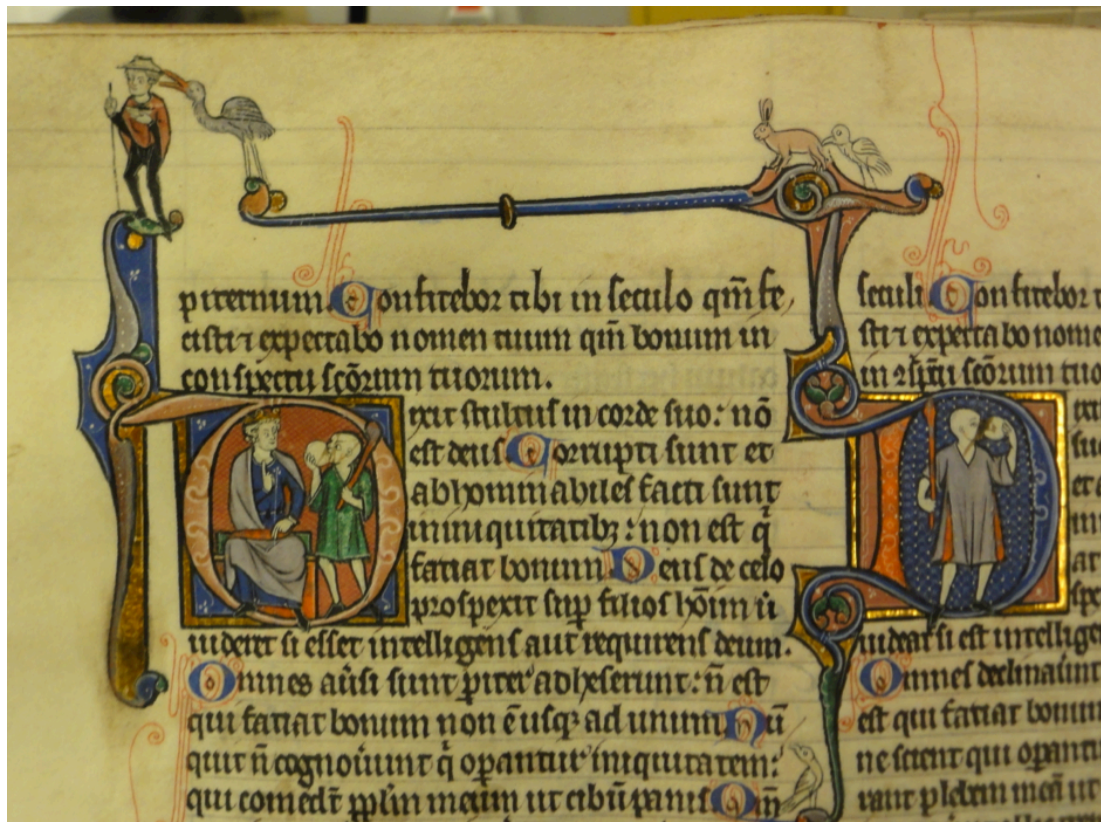 piternum. Confitebor tibi in seculo qm̄ fe
cisti ⁊ expectabo nomen tuum qm̄ bonum in
conspectu scōrum tuorum.
Dixit stultus in corde suo: nō
est deus Corrupti sunt et
abhominabiles facti sunt
in iniquitatibꝫ: non est q̇
faciat bonum Deus de celo
prospexit sup̱ filios hōim ū
uideret si esset intelligens aut requirens deum.
Omnes aūsi sunt ꝑiter adheserunt: n̄ est
qui faciat bonum non ē usqꝫ ad unum. Nō
qui comedt̄ ppl̄m meum ut cibū panis Om̄
seculi Confitebor t
sti ⁊ expectabo nome
in ɔspc̄u scōrum tuo
Dixi
su
et a
in
at
spe
uideat si est intellige
Omnes declinauīnt
est qui faciat bonum
ne scient qui oꝑant
rant plebem meā ut